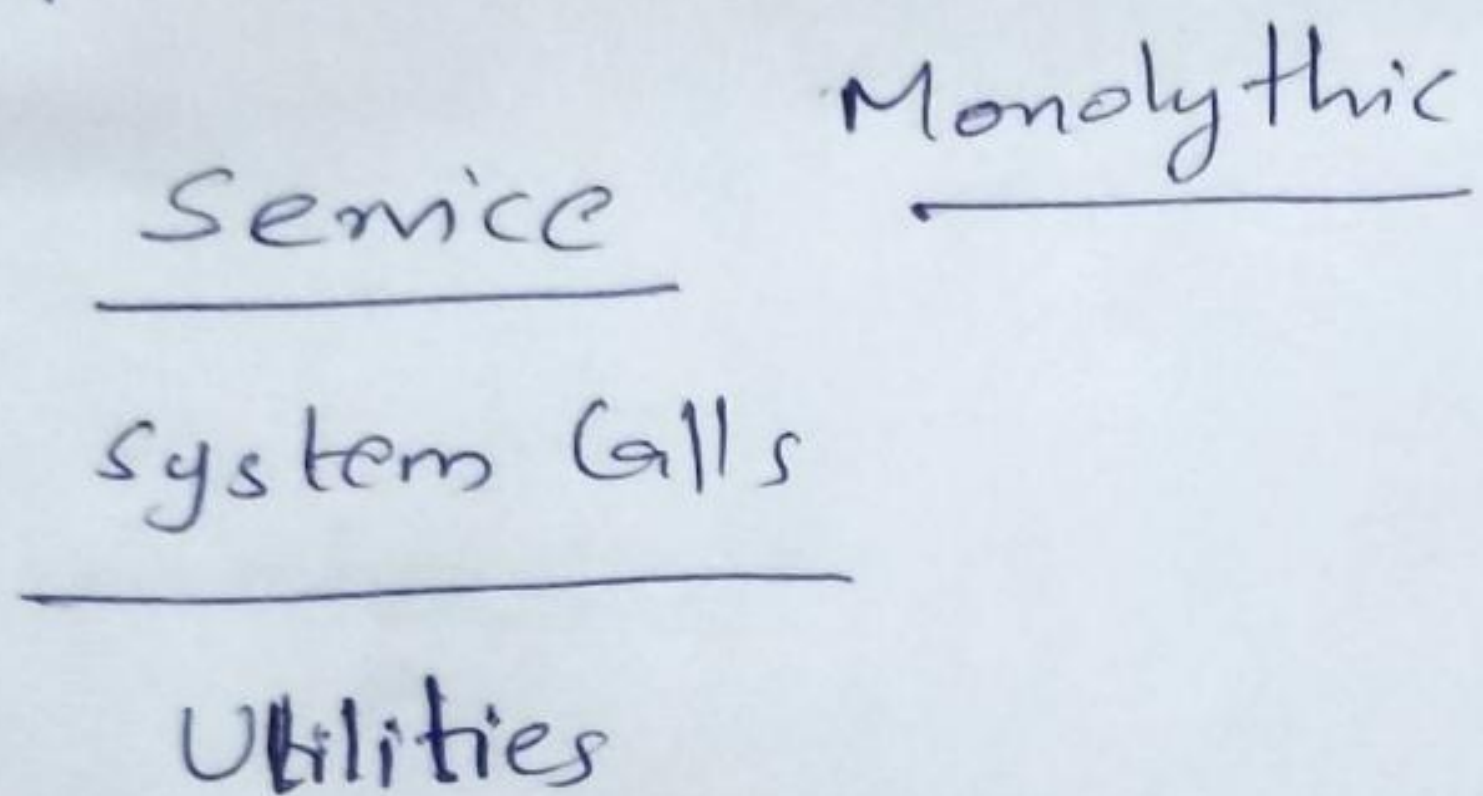 Monolythic
Service
System Calls
Utilities